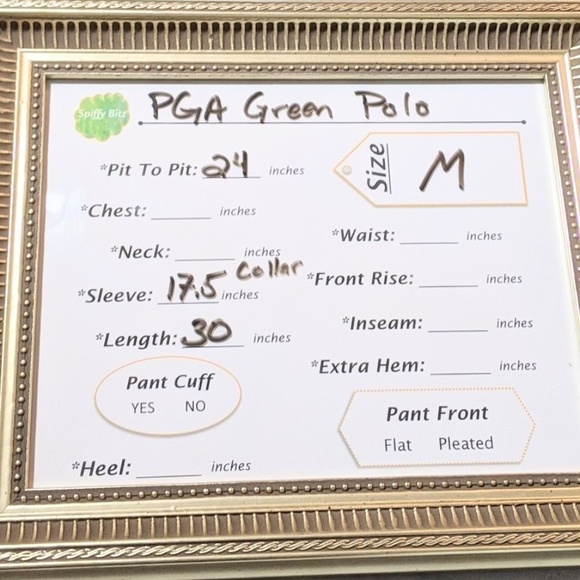 Spiffy Bitz
PGA Green Polo
*Pit To Pit: 24 inches
Size M
*Chest: ______ inches
*Neck: ______ inches
*Waist: ______ inches
Collar
*Sleeve: 17.5 inches
*Front Rise: ______ inches
*Length: 30 inches
*Inseam: ______ inches
*Extra Hem: ______ inches
Pant Cuff
YES NO
Pant Front
Flat Pleated
*Heel: ______ inches